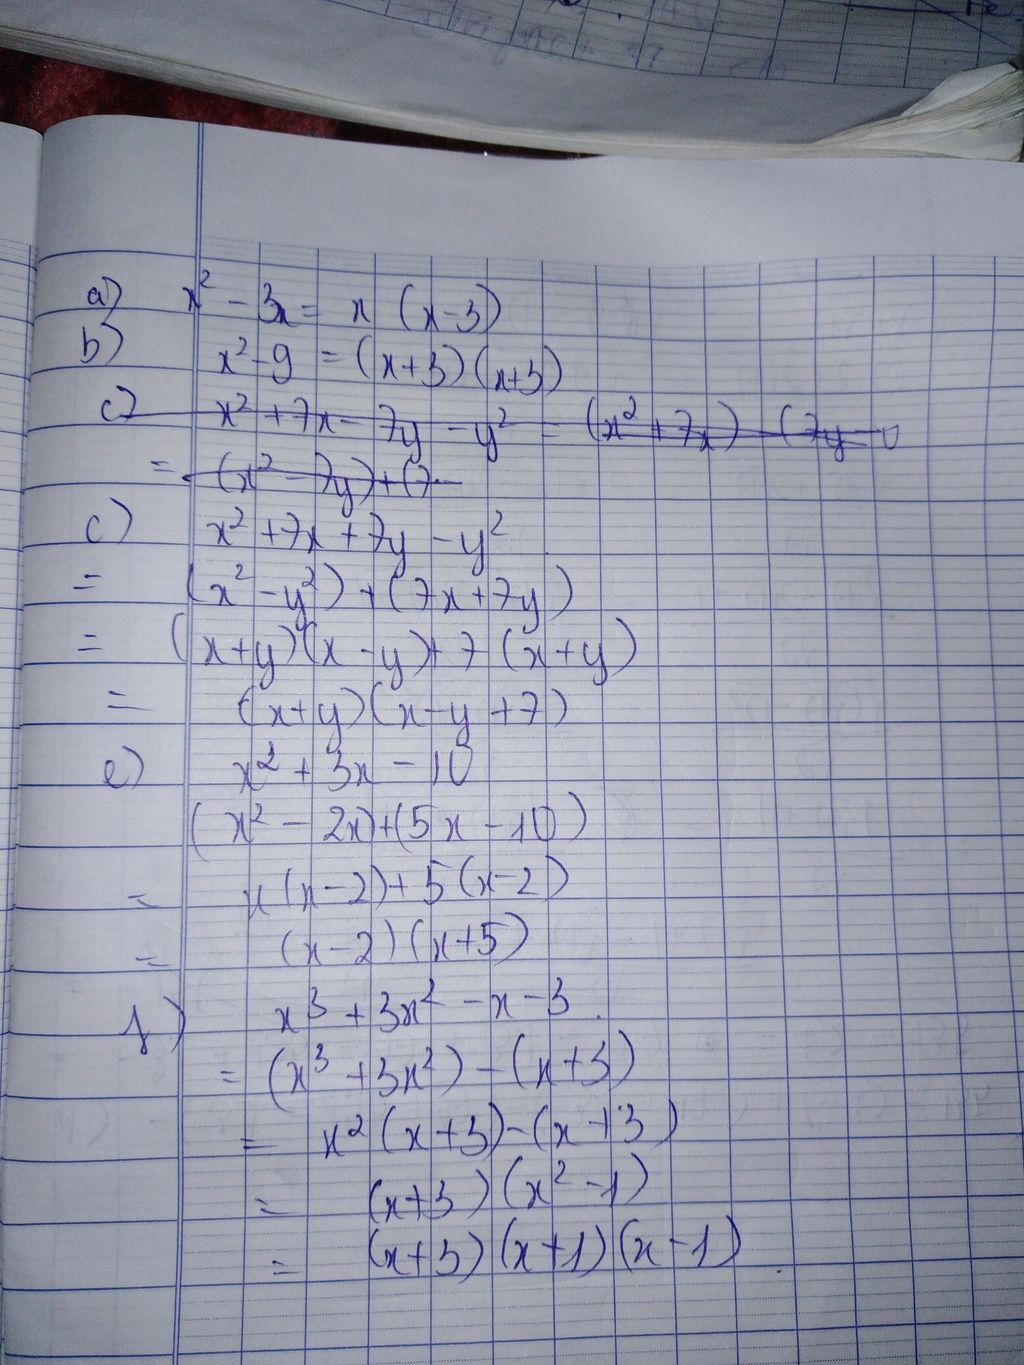 a) x² - 3x = x (x-3)
b) x² - 9 = (x+3)(x+3)
c) x² + 7x - 7y - y² = (x² + 7x) - (7y - y
= (x² - 7y) + (7
c) x² + 7x + 7y - y²
= (x² - y²) + (7x + 7y)
= (x+y)(x-y) + 7 (x+y)
= (x+y)(x-y+7)
e) x² + 3x - 10
(x² - 2x) + (5x - 10)
= x(x-2) + 5(x-2)
= (x-2)(x+5)
f) x³ + 3x² - x - 3.
= (x³ + 3x²) - (x+3)
= x² (x+3) - (x+3)
= (x+3)(x² - 1)
= (x+3)(x+1)(x-1)